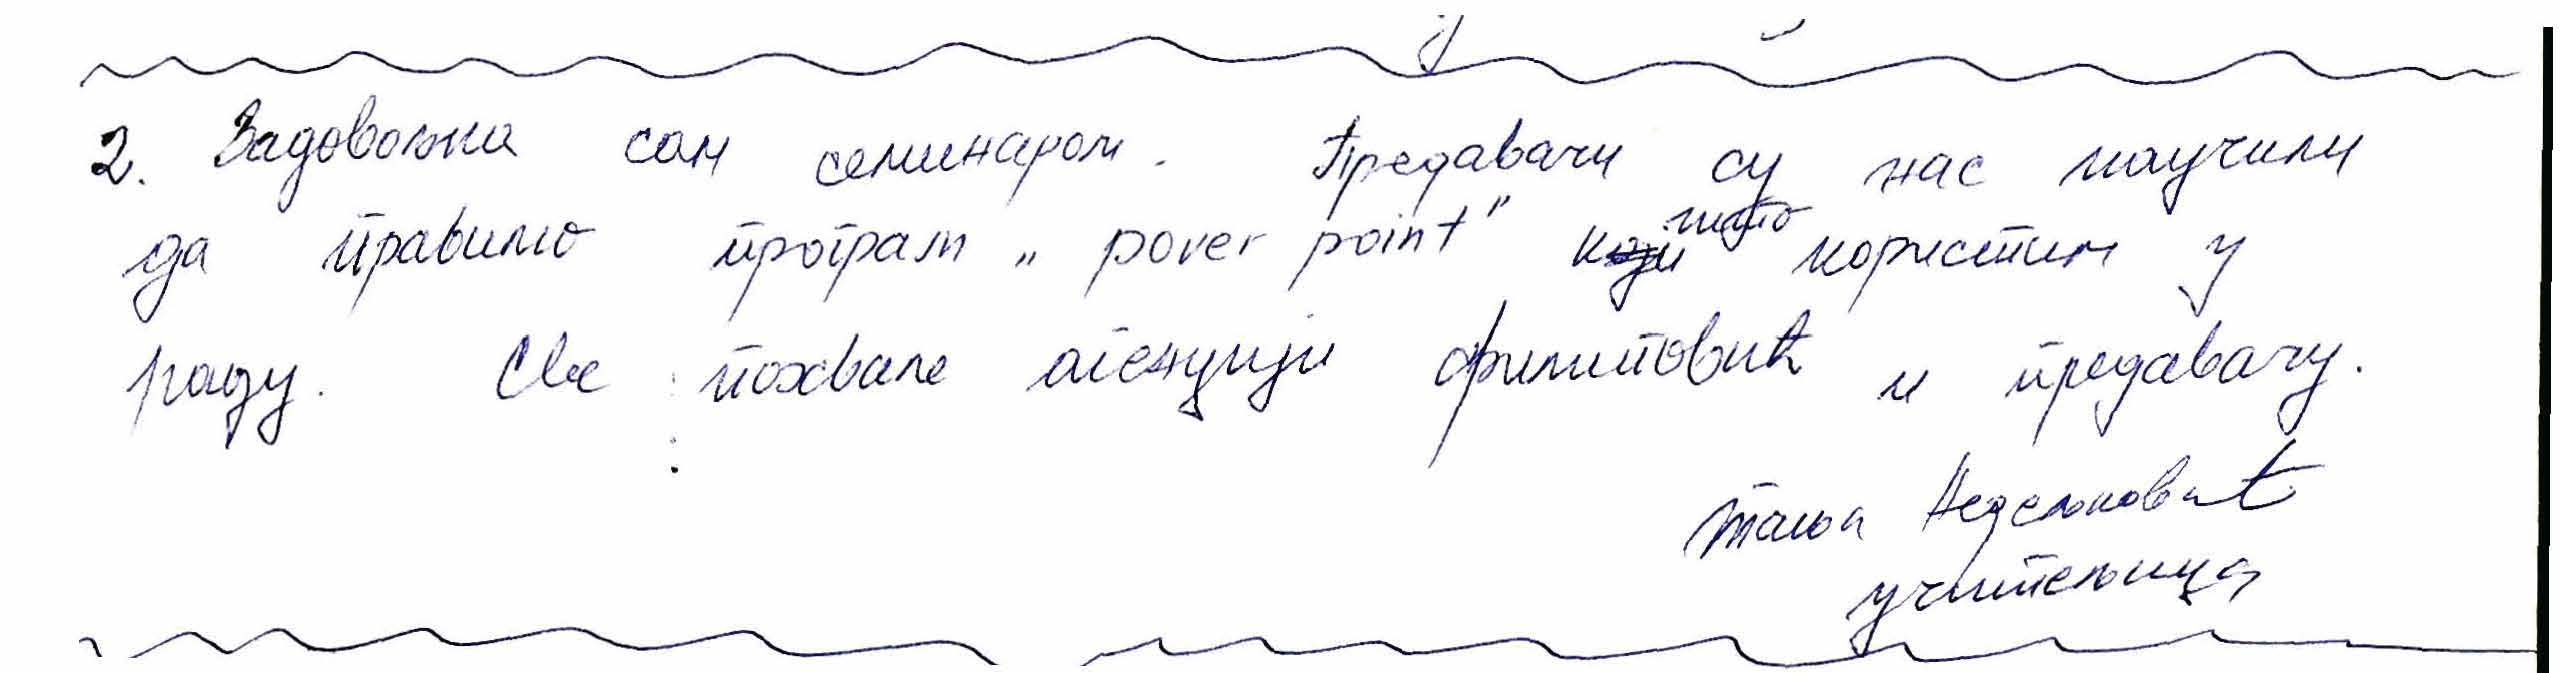 2. Задовољна сам семинаром. Предавачи су нас научили
да правимо програм „pover point" који што користим у
раду. Све похвале агенцији Филиповић и предавачу.
Тања Недељковић
учитељица